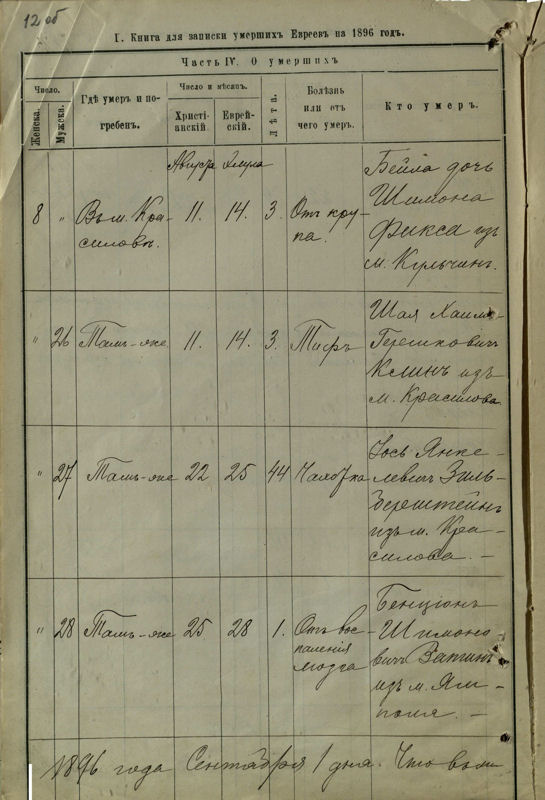 12 об
I. Книга для записки умершихъ Евреевъ на 1896 годъ.
Часть IV. О умершихъ
Число.
Женска.
Мужска.
Гдѣ умеръ и погребенъ.
Число и мѣсяцъ.
Христіанскій.
Еврейскій.
Лѣта.
Болѣзнь или отъ чего умеръ.
Кто умеръ.
Августа Элула
8 " Въ м. Кра-
силовѣ. 11. 14. 3. Отъ кру-
па.
Бейла дочь
Шимона
Фикса изъ
м. Кульчинъ.
" 26 Тамъ-же 11. 14. 3. Тифъ
Шая Хаим-
Гершкович
Клинъ изъ
м. Красилова.
" 27 Тамъ-же 22 25 44 Чахотка
Іось Янке-
левичъ Зиль-
берштейнъ
изъ м. Кра-
силова. -
" 28 Тамъ-же 25 28 1. Отъ вос-
паленія
мозга
Бенціонъ
Шимоно
вичъ
изъ м. Ям-
поля. -
1896 года Сентября 1 дня. Что